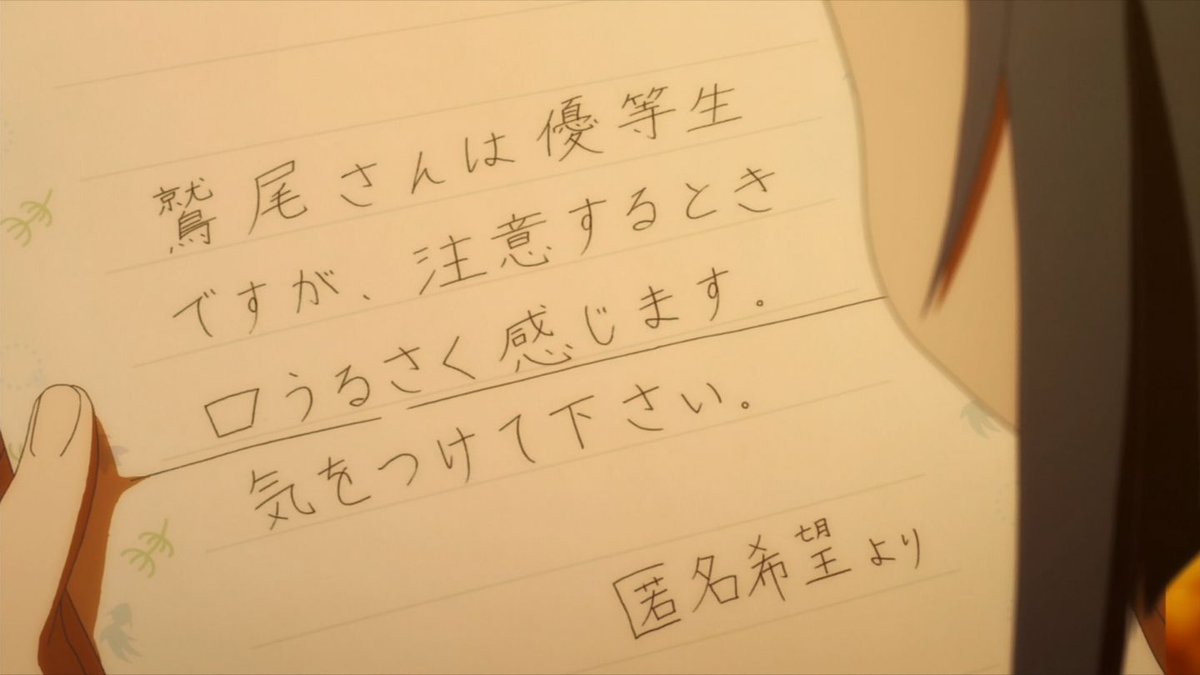 鷲尾さんは優等生
ですが、注意するとき
口うるさく感じます。
気をつけて下さい。
匿名希望より